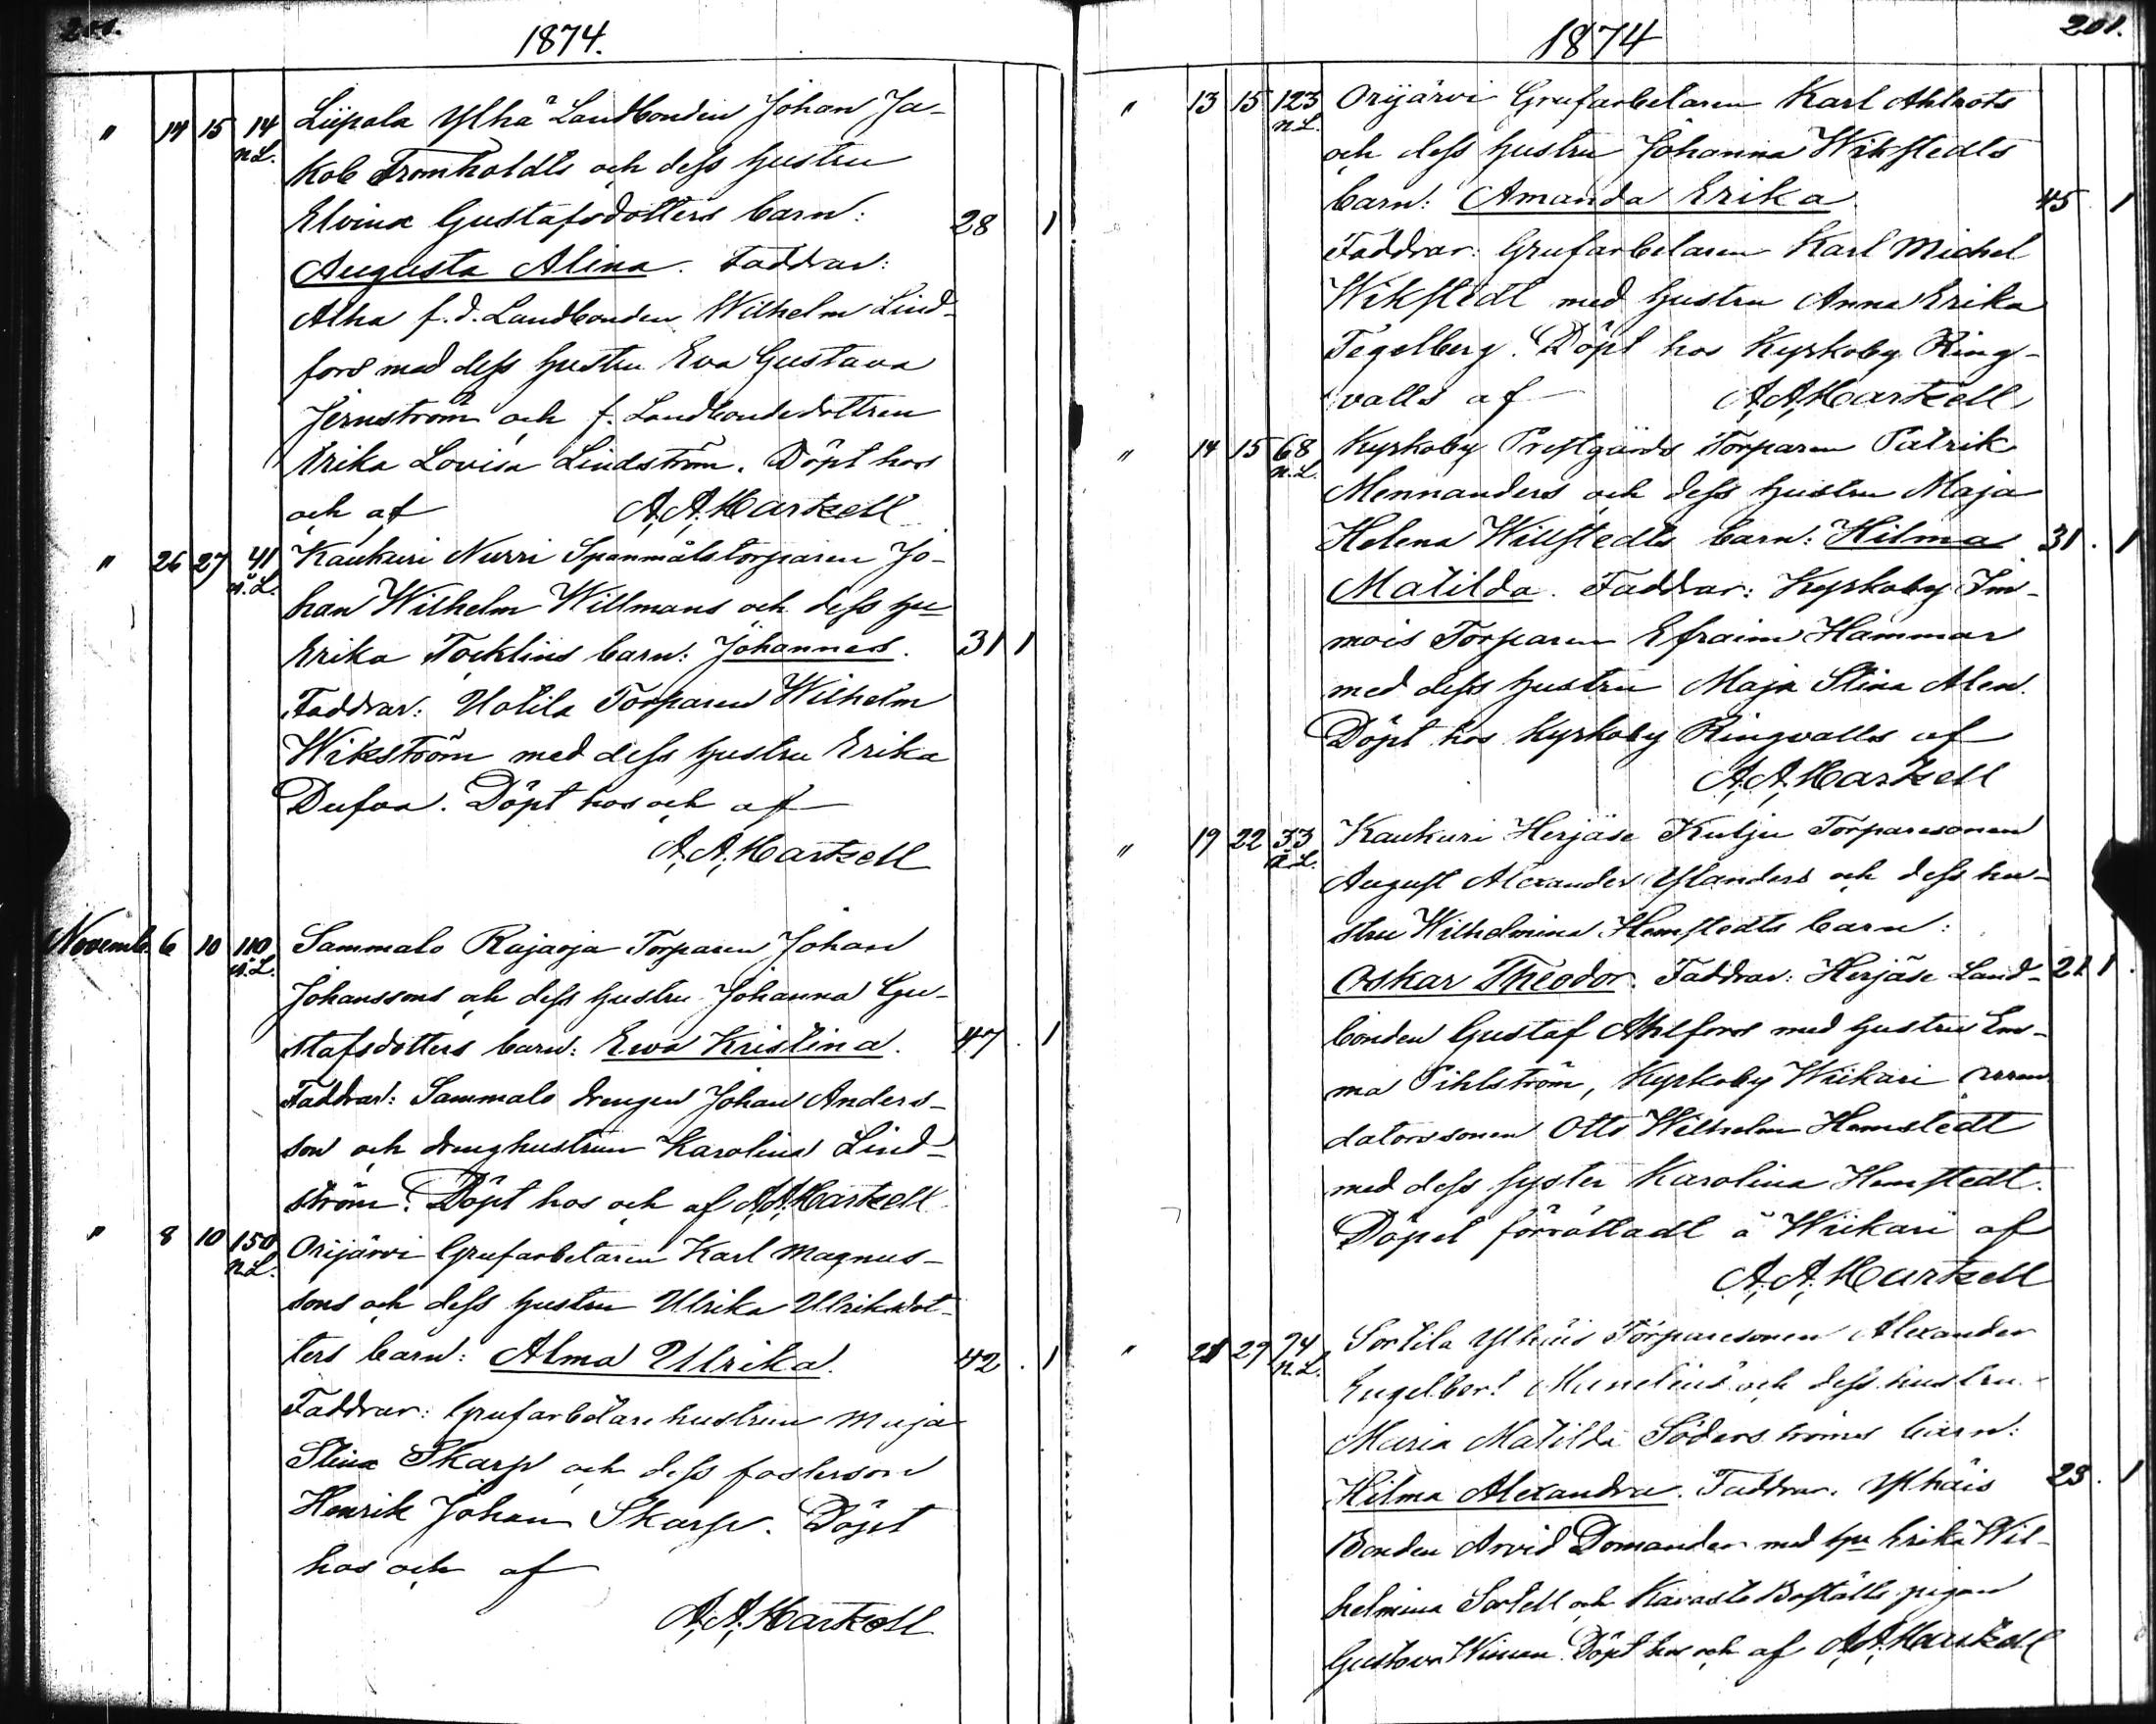 201.
1874.
" 14 15 14 Liipola Ylhä Landbonden Johan Ja-
n.L.
kob Tromholdts och dess hustru
Elvina Gustafsdotters barn: 28 1
Augusta Alina. Faddrar:
Alha f.d. Landbonden Wilhelm Lind-
fors med dess hustru Eva Gustava
Jernström och f. Landbondedottren
Erika Lovisa Lindström. Döpt hos
och af A.A. Hartzell
" 26 27 41 Kaukuri Nurri Spanmålstorparen Jo-
n.L.
han Wilhelm Willmans och dess hu
Erika Tocklins barn: Johannes. 31 1
Faddrar: Uotila Torparen Wilhelm
Wikström med dess hustru Erika
Dufva. Döpt hos och af
A.A. Hartzell
Novemb. 6 10 110 Sammalo Rajaoja Torparen Johan
n.L.
Johanssons och dess hustru Johanna Gu-
stafsdotters barn: Ewa Kristina. 47. 1
Faddrar: Sammalo drengen Johan Anders-
son och drenghustrun Karolina Lind-
ström. Döpt hos och af A.A. Hartzell
" 8 10 150 Orijärvi Grufarbetaren Karl Magnus-
n.L.
sons och dess hustru Ulrika Ulriksdot-
ters barn: Alma Ulrika. 42. 1
Faddrar: Grufarbetarehustrun Maja
Stina Skarp och dess fosterson
Henrik Johan Skarp. Döpt
hos och af
A.A. Hartzell
1874
201.
" 13 15 123 Orijärvi Grufarbetaren Karl Ahlrots
n.L.
och dess hustru Johanna Wikstedts
barn: Amanda Erika 45. 1
Faddrar: Grufarbetaren Karl Michel
Wikstedt med hustru Anna Erika
Tegelberg. Döpt hos Kyrkoby Ring-
valls af A.A. Hartzell
" 14 15 68 Kyrkoby Prestgårds Torparen Patrik
n.L.
Mennanders och dess hustru Maja
Helena Willstedts barn: Hilma 31. 1
Matilda. Faddrar: Kyrkoby Im-
mois Torparen Efraim Hammar
med dess hustru Maja Stina Alen.
Döpt hos Kyrkoby Ringvalls af
A.A. Hartzell
" 19 22 33 Kaukuri Herjäse Kulju Torparesonen
n.L.
August Alexander Ylanders och dess hu-
stru Wilhelmina Hemstedts barn:
Oskar Theodor. Faddrar: Herjäse Land- 21 1.
bonden Gustaf Ahlfors med hustru Em-
ma Pihlström, Kyrkoby Wiikari Arren
datorssonen Otto Wilhelm Hemstedt
med dess syster Karolina Hemstedt.
Döpet förrättadt å Wiikari af
A.A. Hartzell
" 28 29 74 Sortila Ylhäis Torparesonen Alexander
n.L.
Engelbert Munelius och dess hustru
Maria Matilda Söderströms barn:
Hilma Alexandra. Faddrar. Ylhäis 23. 1
Bonden Arvid Domander med hu Erika Wil-
helmina Sortell och Karasto Boställs pigan
Gustava Wiman. Döpt hos och af A.A. Hartzell